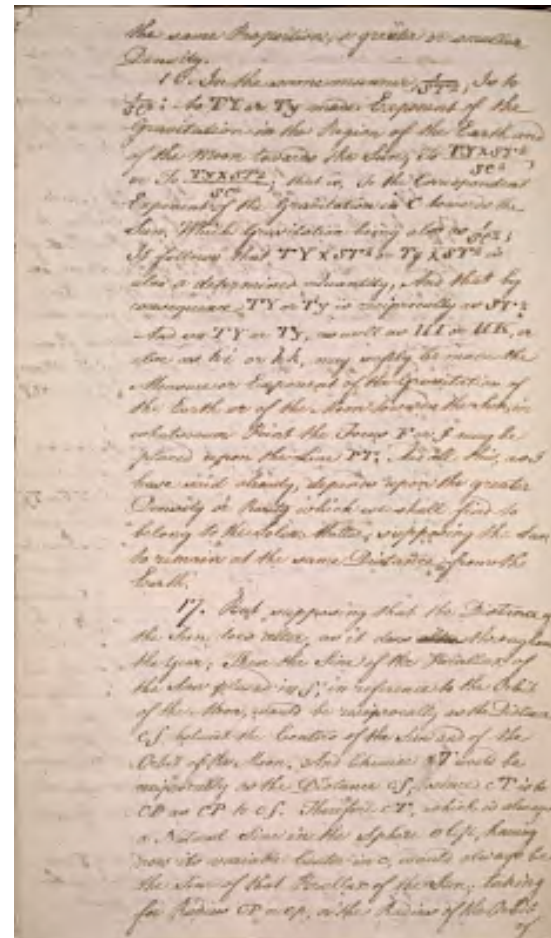 the same Proportion, a greater or smaller
Density.
16. In the same manner, 1/ST², Is to
1/SC²: as TY or Ty made Exponent of the
Gravitation in the Region of the Earth and
of the Moon towards the Sun, to TY×ST²/SC²,
or To Ty×ST²/SC²; that is, To the Correspondent
Exponent of the Gravitation in C towards the
Sun, Which Gravitation being also as 1/SC²;
It follows that TY×ST² or Ty×ST² is
also a determined Quantity, And that by
consequence TY or Ty is reciprocally as ST².
And as TY or Ty, as well as HI or HK, or
also as hi or hk, may be made the
Measure or Exponent of the Gravitation of
the Earth or of the Moon towards the Sun, in
whatsoever Point the Focus F or f may be
placed upon the Line PT; And all this, as I
have said already, depends upon the greater
Density or Rarity which we shall find to
belong to the Solar Matter, supposing the Sun
to remain at the same Distance from the
Earth.
17. But supposing that the Distance of
the Sun does alter, as it does throughout
the Year; Then the Sine of the Parallax of
the Sun placed in S, in reference to the Orbit
of the Moon, would be reciprocally as the Distance
CS, between the Centers of the Sun and of the
Orbit of the Moon; And likewise cT would be
reciprocally as the Distance cS, since cT is to
CP as CP to cS. Therefore cT, which is always
a Natural Sine in the Sphere having
now its variable Center in c, would always be
the Sine of that Parallax of the Sun, taking
for Radius CP or cp, or the Radius of the Orbit
of